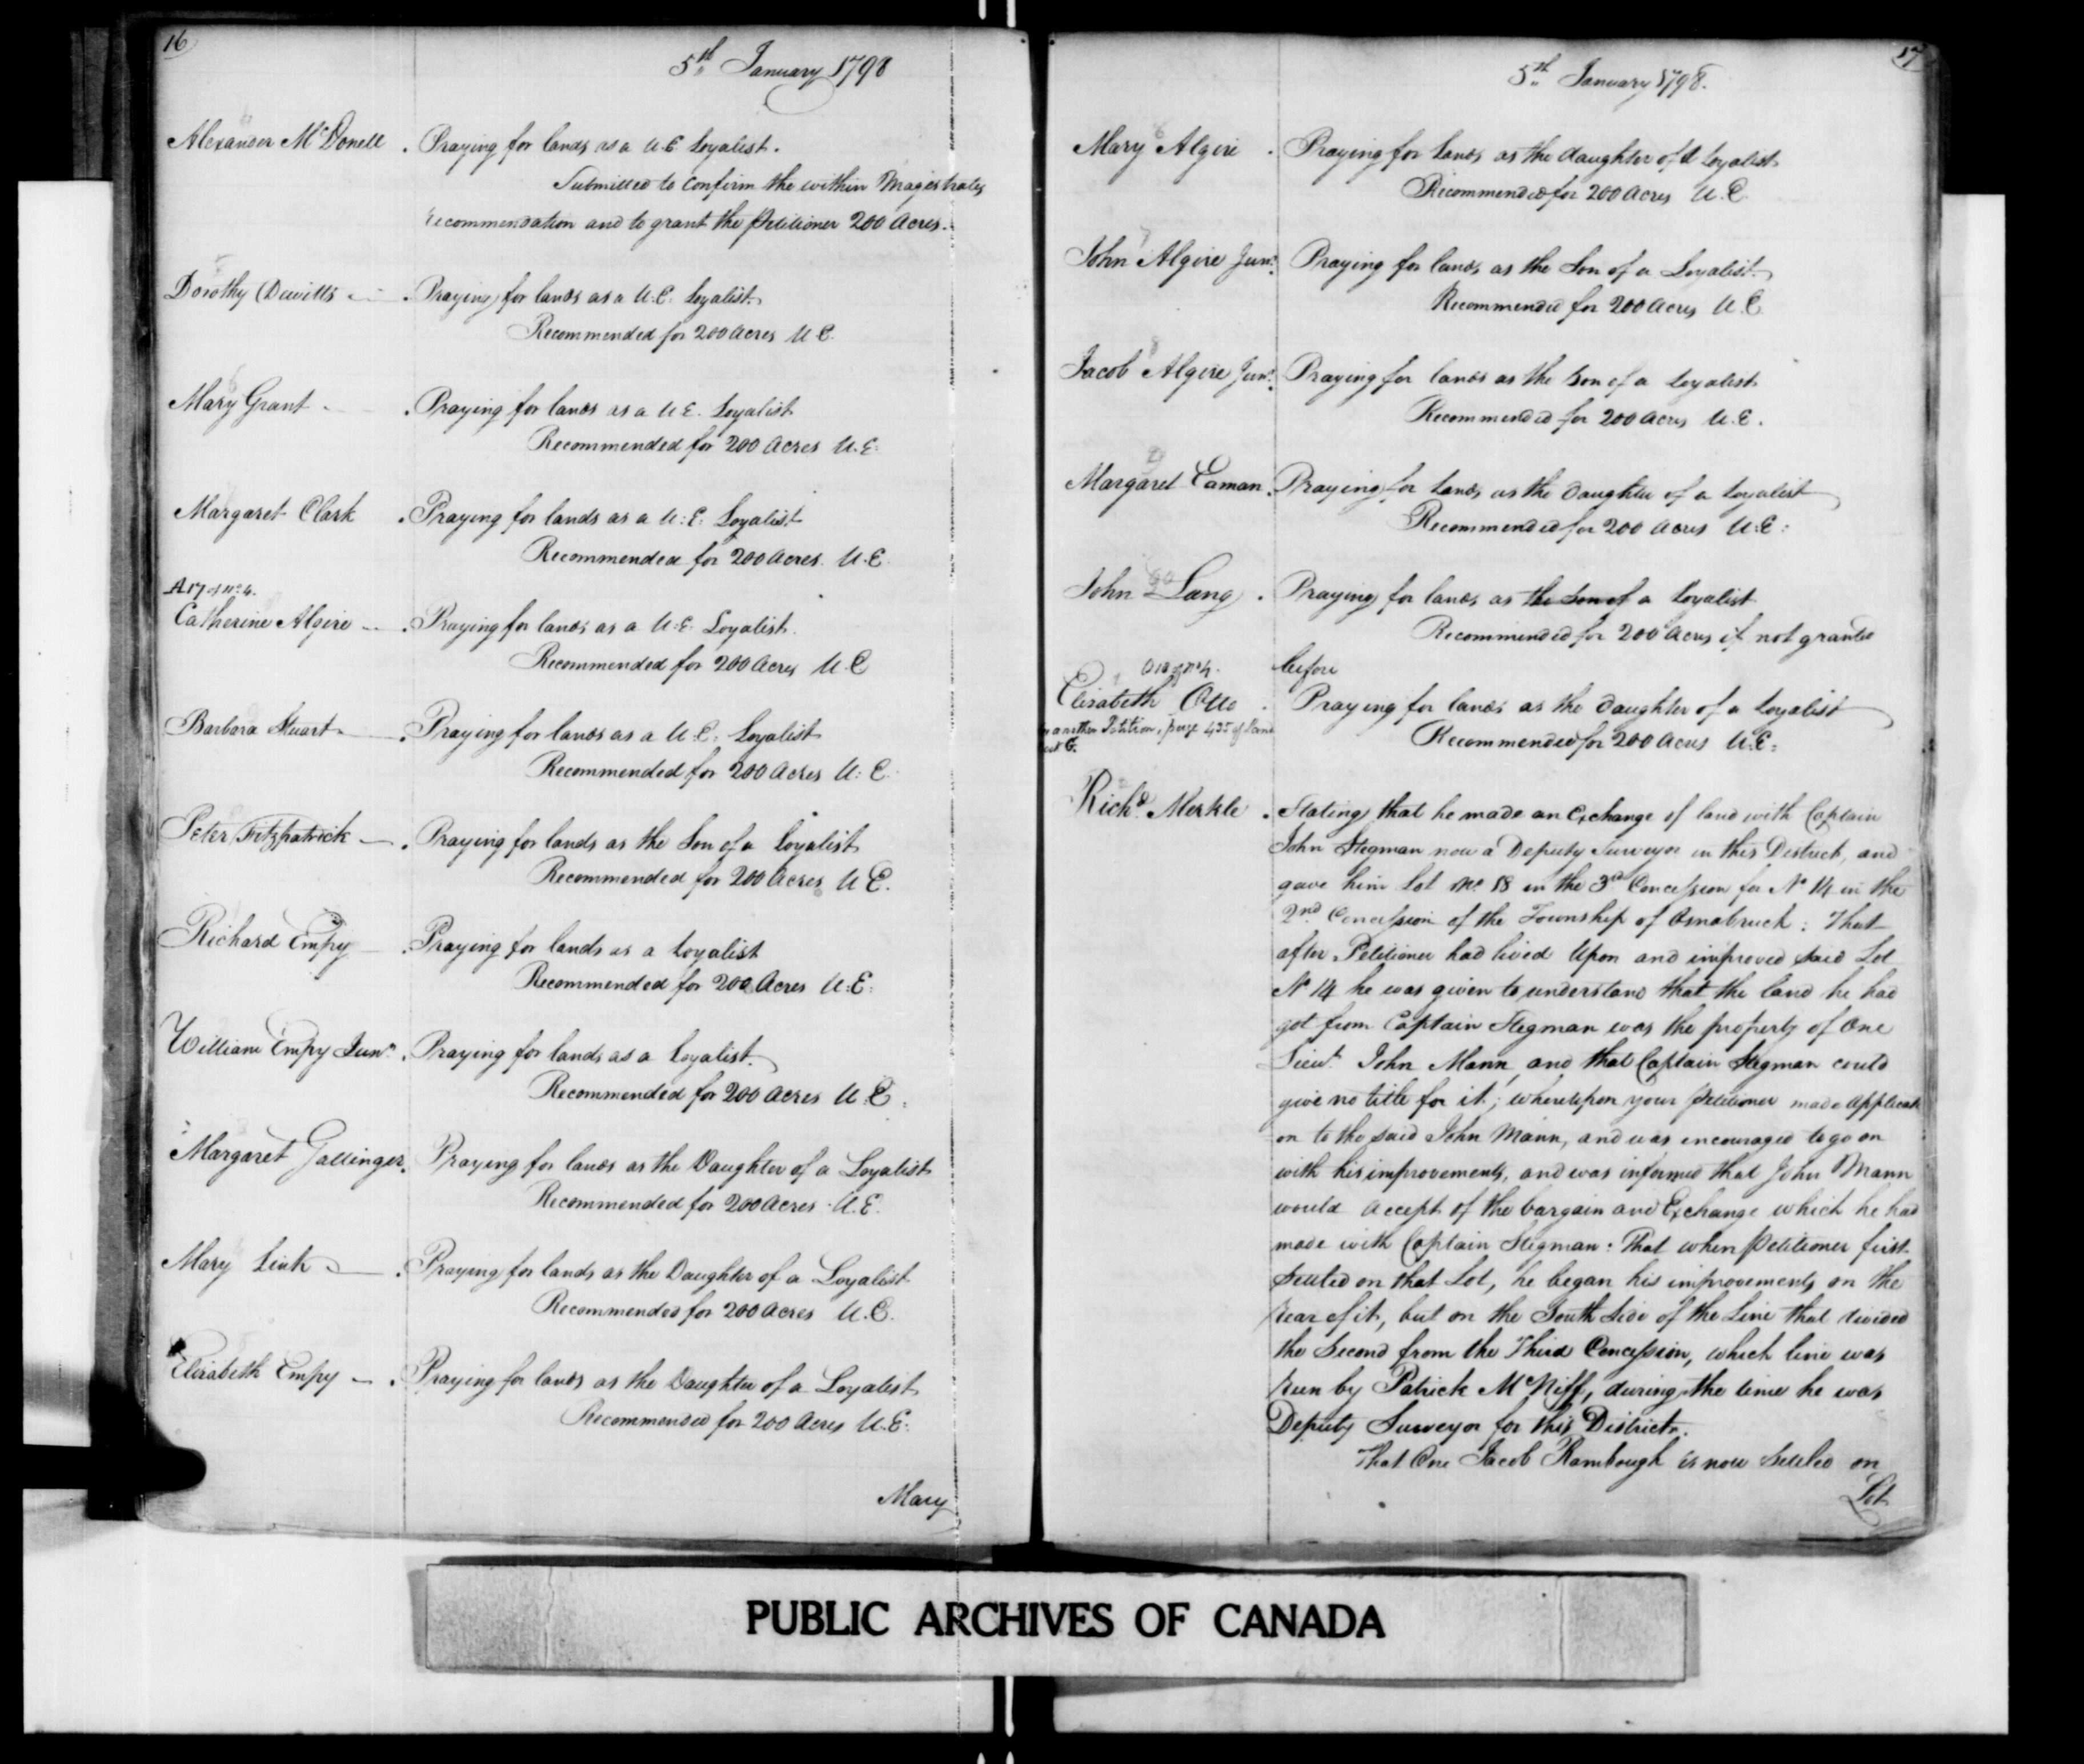 16
5th January 1798
Alexander McDonell . Praying for lands as a U.E. Loyalist.
Submitted to confirm the within Magistrates
recommendation and to grant the Petitioner 200 Acres.
Dorothy Dewitts . Praying for lands as a U.E. Loyalist
Recommended for 200 Acres U.E.
Mary Grant . Praying for lands as a U.E. Loyalist
Recommended for 200 Acres U.E.
Margaret Clark . Praying for lands as a U.E. Loyalist
Recommended for 200 Acres U.E.
A 17 of No 4.
Catherine Algire . Praying for lands as a U.E. Loyalist.
Recommended for 200 Acres U.E
Barbara Stuart . Praying for lands as a U.E. Loyalist
Recommended for 200 Acres U.E.
Peter Fitzpatrick . Praying for lands as the Son of a Loyalist
Recommended for 200 Acres U.E.
Richard Empy . Praying for lands as a Loyalist
Recommended for 200 Acres U.E.
William Empy Junr. . Praying for lands as a Loyalist.
Recommended for 200 Acres U.E.
Margaret Gallinger. Praying for lands as the Daughter of a Loyalist
Recommended for 200 Acres U.E.
Mary Link . Praying for lands as the Daughter of a Loyalist
Recommended for 200 Acres U.E.
Elizabeth Empy . Praying for lands as the Daughter of a Loyalist
Recommended for 200 Acres U.E.
Mary
17
5th January 1798.
Mary Algire . Praying for lands as the daughter of a Loyalist
Recommended for 200 Acres U.E.
John Algire Junr. Praying for lands as the Son of a Loyalist
Recommended for 200 Acres U.E.
Jacob Algire Junr. Praying for lands as the Son of a Loyalist
Recommended for 200 Acres U.E.
Margaret Eaman. Praying for lands as the Daughter of a Loyalist
Recommended for 200 Acres U.E.
John Lang . Praying for lands as the Son of a Loyalist
Recommended for 200 Acres if not granted
before
O 18 of No 4.
Elisabeth Otto . Praying for lands as the Daughter of a Loyalist
another Petition, page 435 of Land
Recommended for 200 Acres U.E.
Richd. Merkle . Stating that he made an Exchange of land with Captain
John Stegman now a Deputy Surveyor in this District, and
gave him Lot No. 18 in the 3rd Concession for No 14 in the
2nd Concession of the Township of Osnabruck : That
after Petitioner had lived Upon and improved said Lot
No 14 he was given to understand that the land he had
got from Captain Stegman was the property of One
Lieut. John Mann, and that Captain Stegman could
give no title for it; whereupon your Petitioner made applicati
on to the said John Mann, and was encouraged to go on
with his improvements, and was informed that John Mann
would accept of the bargain and Exchange which he had
made with Captain Stegman : That when Petitioner first
settled on that Lot, he began his improvements on the
rear of it, but on the South Side of the Line that divided
the Second from the Third Concession, which line was
run by Patrick McNiff, during the time he was
Deputy Surveyor for this District.
That One Jacob Rambough is now settled on
Lot
PUBLIC ARCHIVES OF CANADA